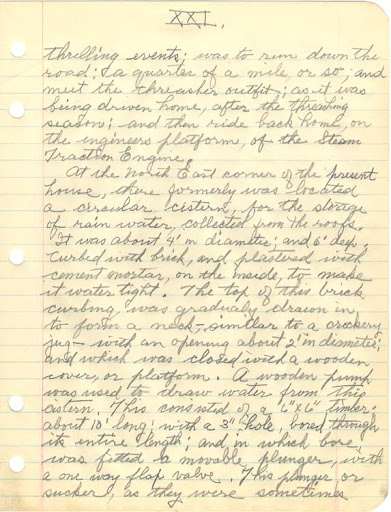 XXI.
thrilling events; was to run down the
road; ¼ a quarter of a mile, or so; and
meet the threasher outfit; as it was
being driven home, after the threashing
season; and then ride back home, on
the ingineers platform, of the Steam
Traction Engine.
At the North East corner of the present
house, there formerly was located
a circular cistern, for the storage
of rain water, collected from the roofs.
It was about 4' in diameter; and 6' deep.
Curbed with brick, and plastered with
cement mortar, on the inside, to make
it water tight. The top of this brick
curbing, was gradualy drawn in
to form a neck - similar to a crockery
jug - with an opening about 2' in diameter;
and which was closed with a wooden
cover, or platform. A wooden pump
was used to draw water from this
cistern. This consisted of a 6"x6" timber
about 10' long; with a 3" hole, bored through
its entire length; and in which bore,
was fitted a movable plunger, with
a one way flap valve. This plunger or
sucker, as they were sometimes